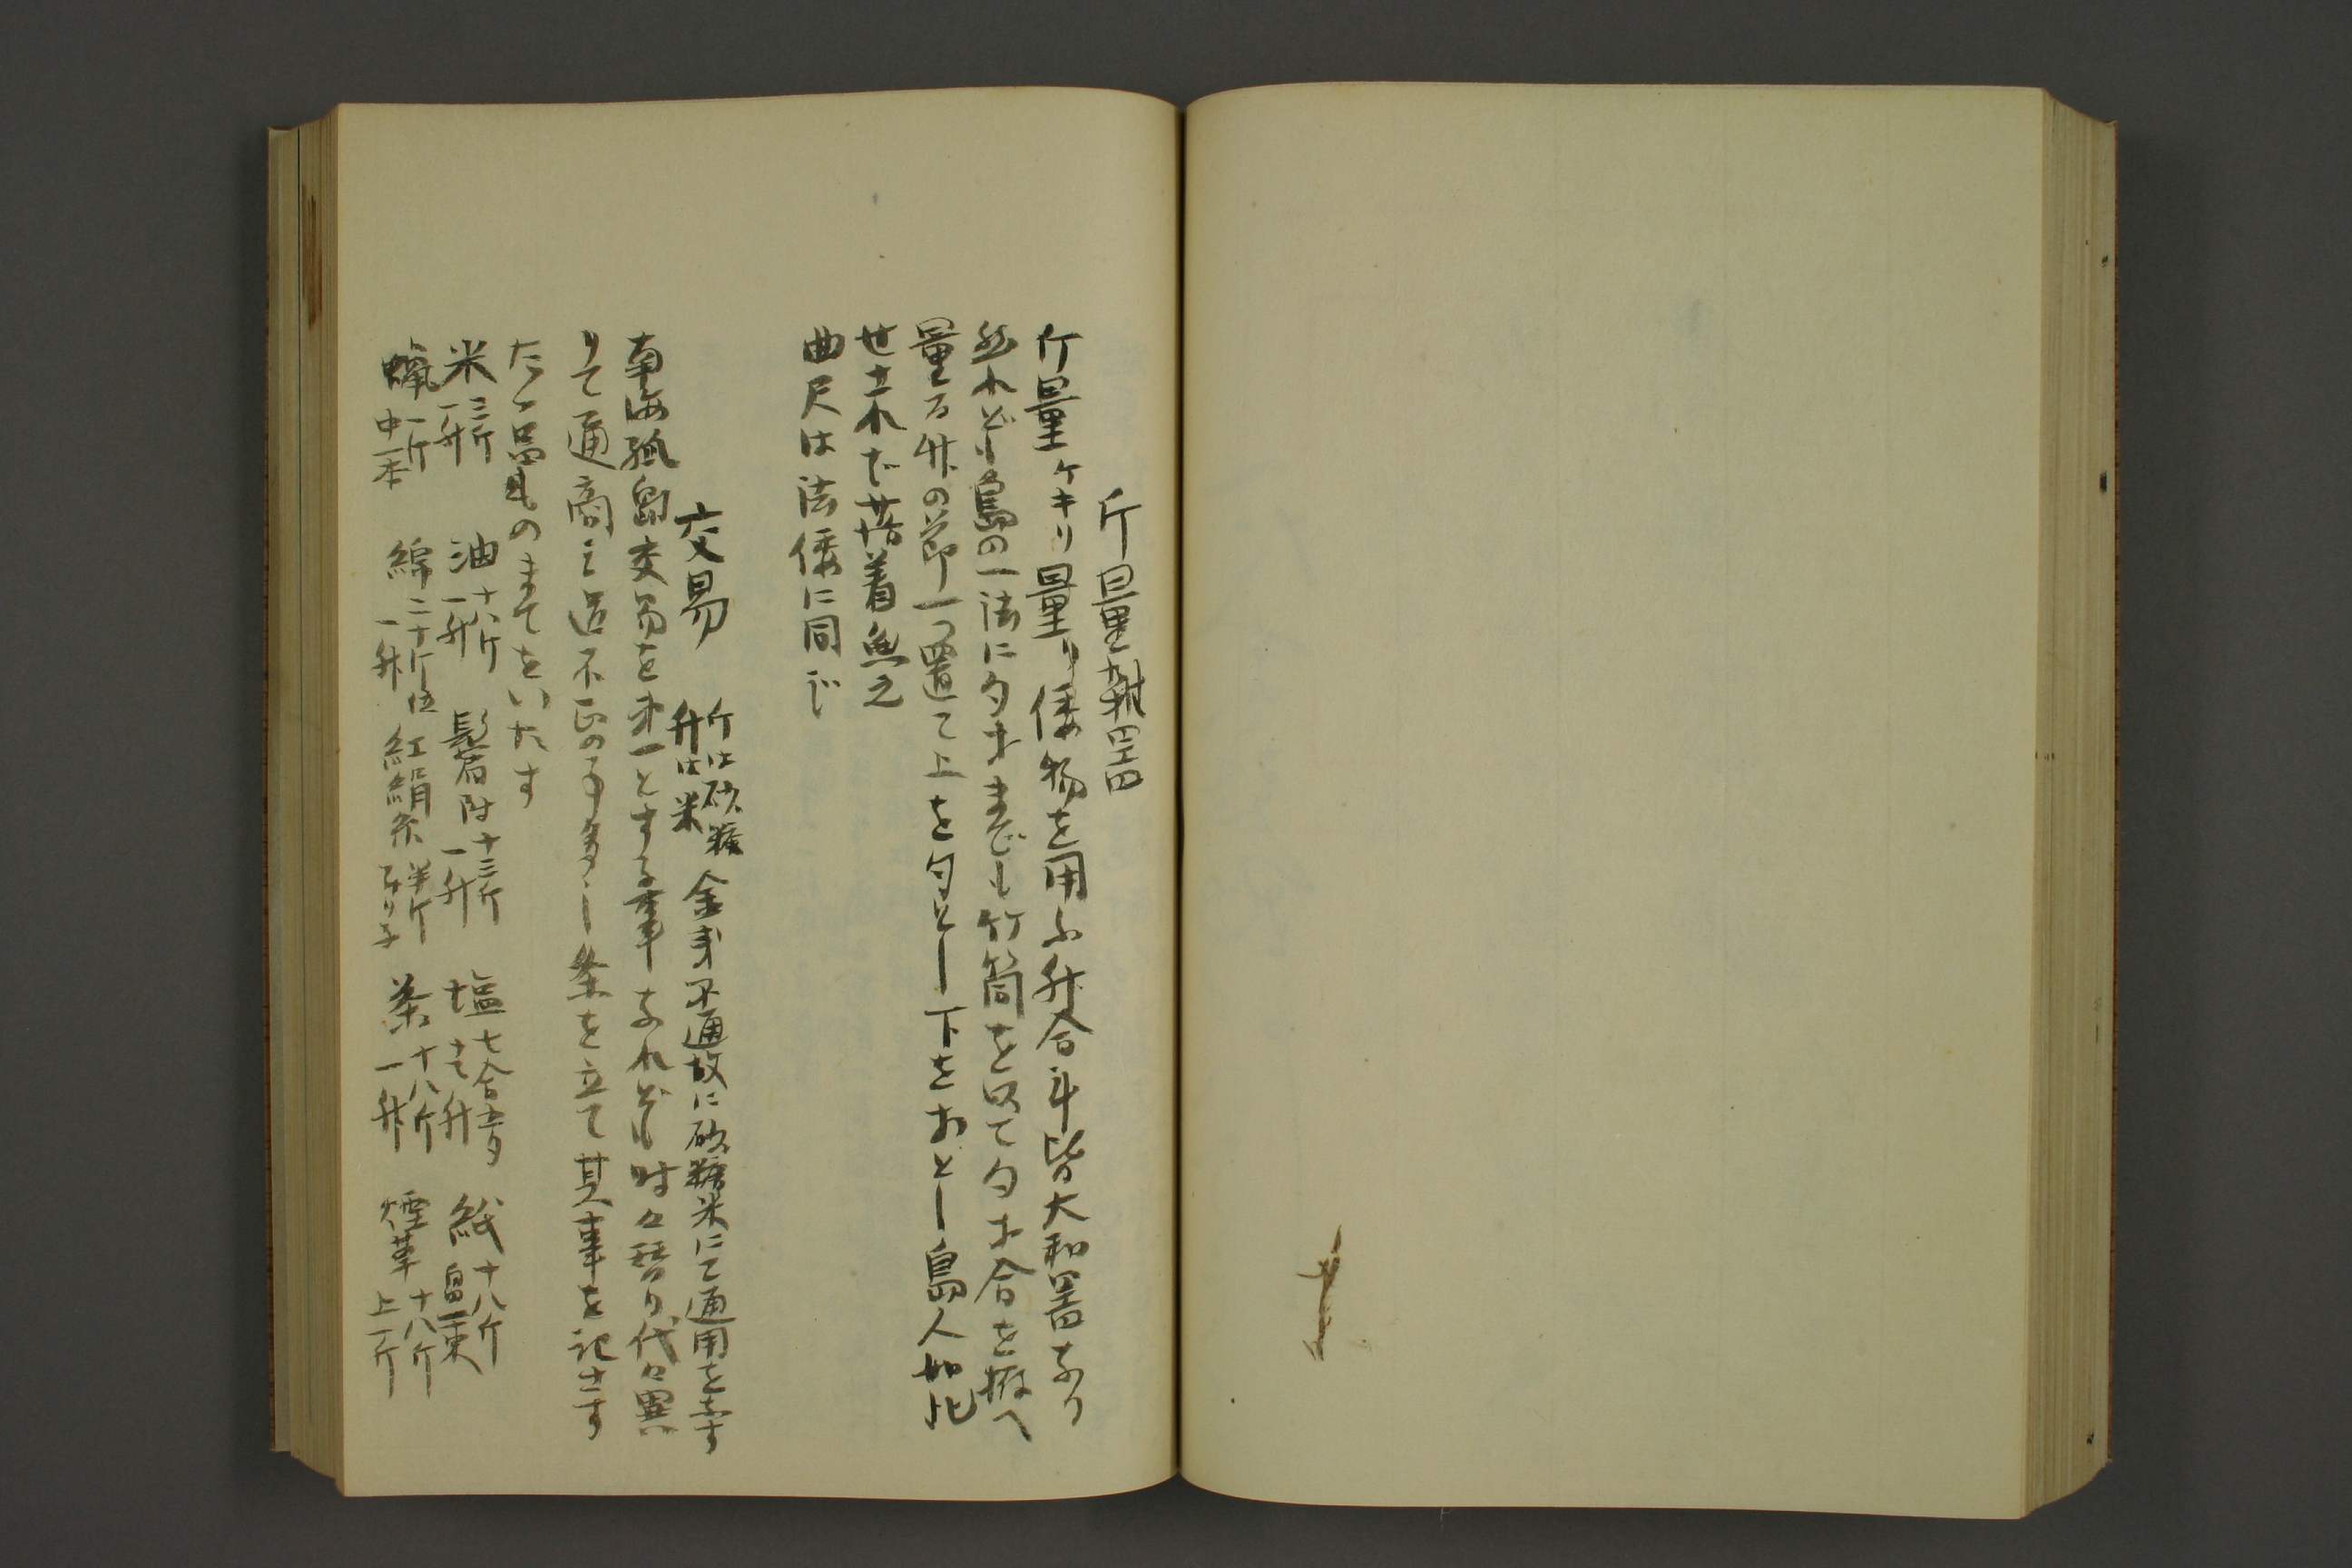 斤量 升 器
斤量ケキリ量り倭物を用ふ升合斗皆大和器なり
然れども島の一法に勺才まども竹筒を以て勺才合を拵へ
量る竹の節一つ置て上を勺とし下を才とし島人如此
せされば落着無之
曲尺は法倭に同じ
交易 斤は砂糖 升は米 金銭不通故に砂糖米にて通用をなす
南海孤島交易を第一とする事なれども時々替り代々異
りて通商之道不正の事多し条を立て其事を記さす
たゝ品ものまてをいたす
米 三斤 一升 油 十八斤 一升 鬢附 十三斤 一升 塩 七合五夕 升 紙 十八斤 一束
蝋 一斤 中一本 綿 二十斤位 一升 紅絹糸 半斤 茶 十八斤 一升 煙草 十八斤 上一斤